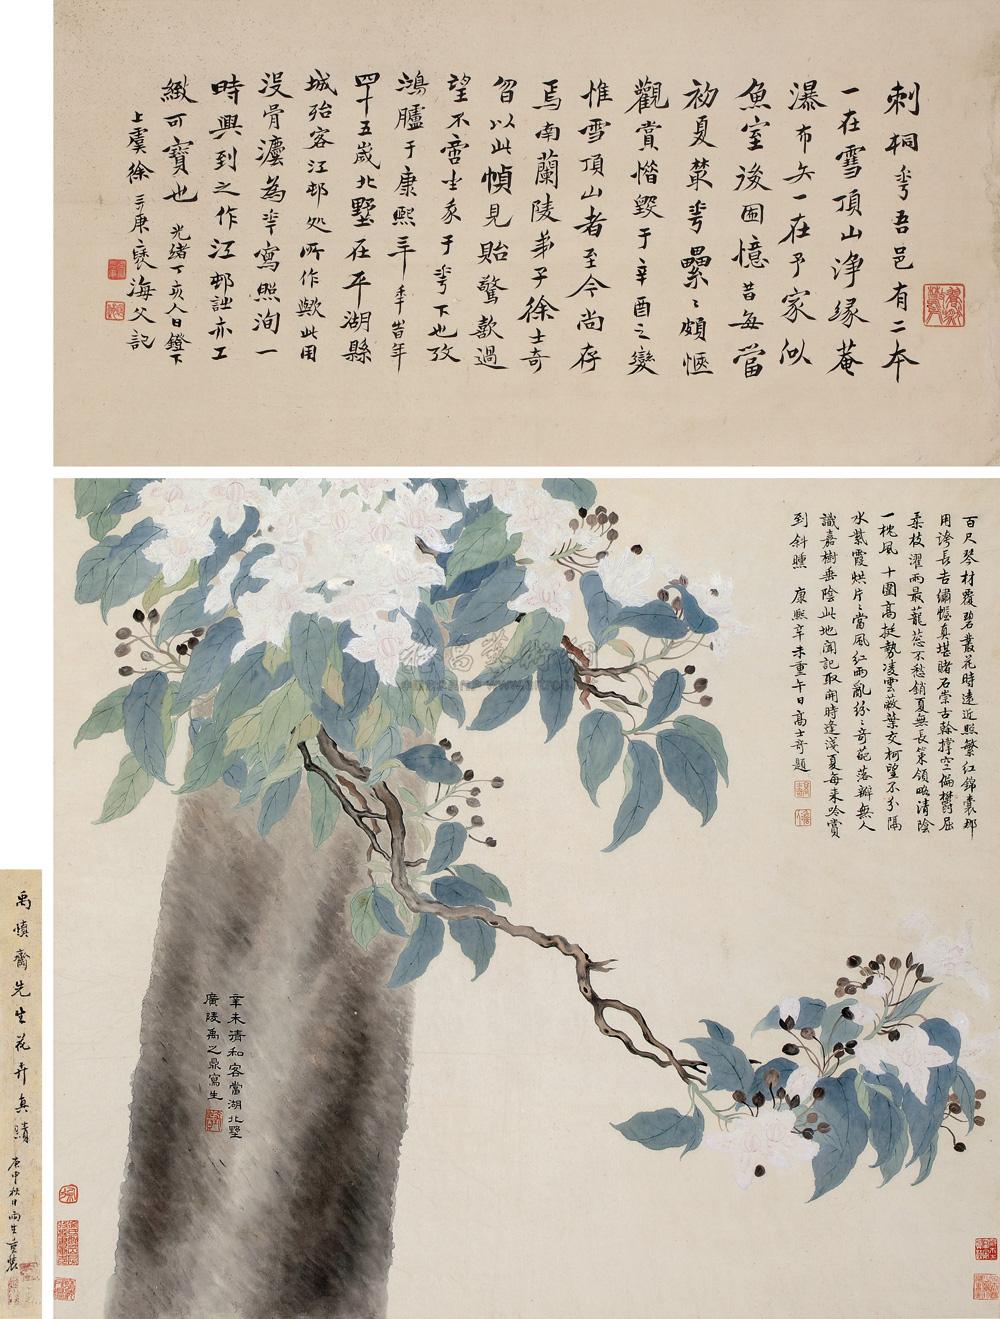 刺桐花吾邑有二本
一在雪頂山淨緣菴
瀑布矢一在予家似
魚室後圃憶昔每當
初夏叢花纍〻頗愜
觀賞惜毀于辛酉之變
惟雪頂山者至今尚存
焉南蘭陵弟子徐士奇
曾以此幀見貽驚歎過
望不啻坐我于花下也攷
鴻臚于康熙三年
四十五歲北墅在平湖縣
城殆客江邨処所作歟此用
沒骨灋為花寫照洵一
時興到之作江邨詿亦工
緻可寶也 光緒丁亥人日鐙下
上虞徐三庚褎海父記
百尺琴材覆碧叢花時遠近照繁紅錦囊那
用誇長吉繡幄真堪賭石崇古幹撐空偏欝屈
柔枝濯雨最蘢蔥不愁銷夏無長策領略清陰
一枕風 十圍高挺勢凌雲蔽葉交柯望不分隔
水紫霞烘片〻當風紅雨亂紛〻奇葩落辦無人
識嘉樹垂陰此地聞記取開時逢淺夏每來吟賞
到斜曛 康熙辛未重午日高士奇題
辛未清和客當湖北墅
廣陵禹之鼎寫生
禹慎齋先生花卉真蹟
庚申秋日雨生重裝